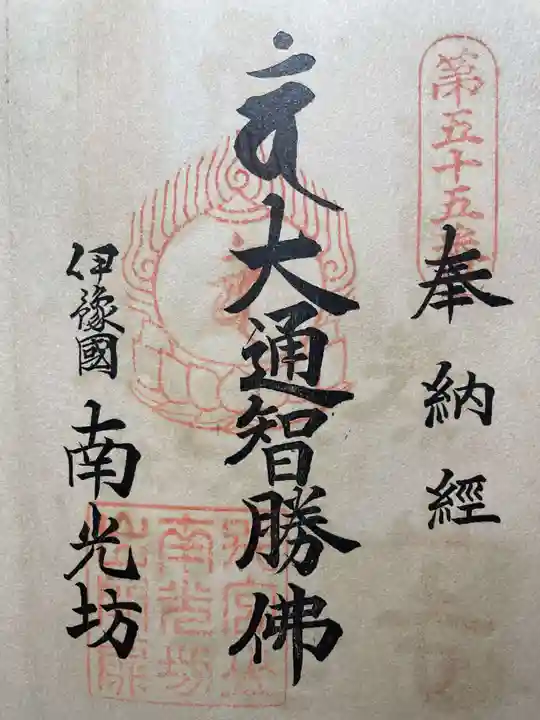 第五十五番
奉納經
大通智勝佛
伊豫國 南光坊
南光坊